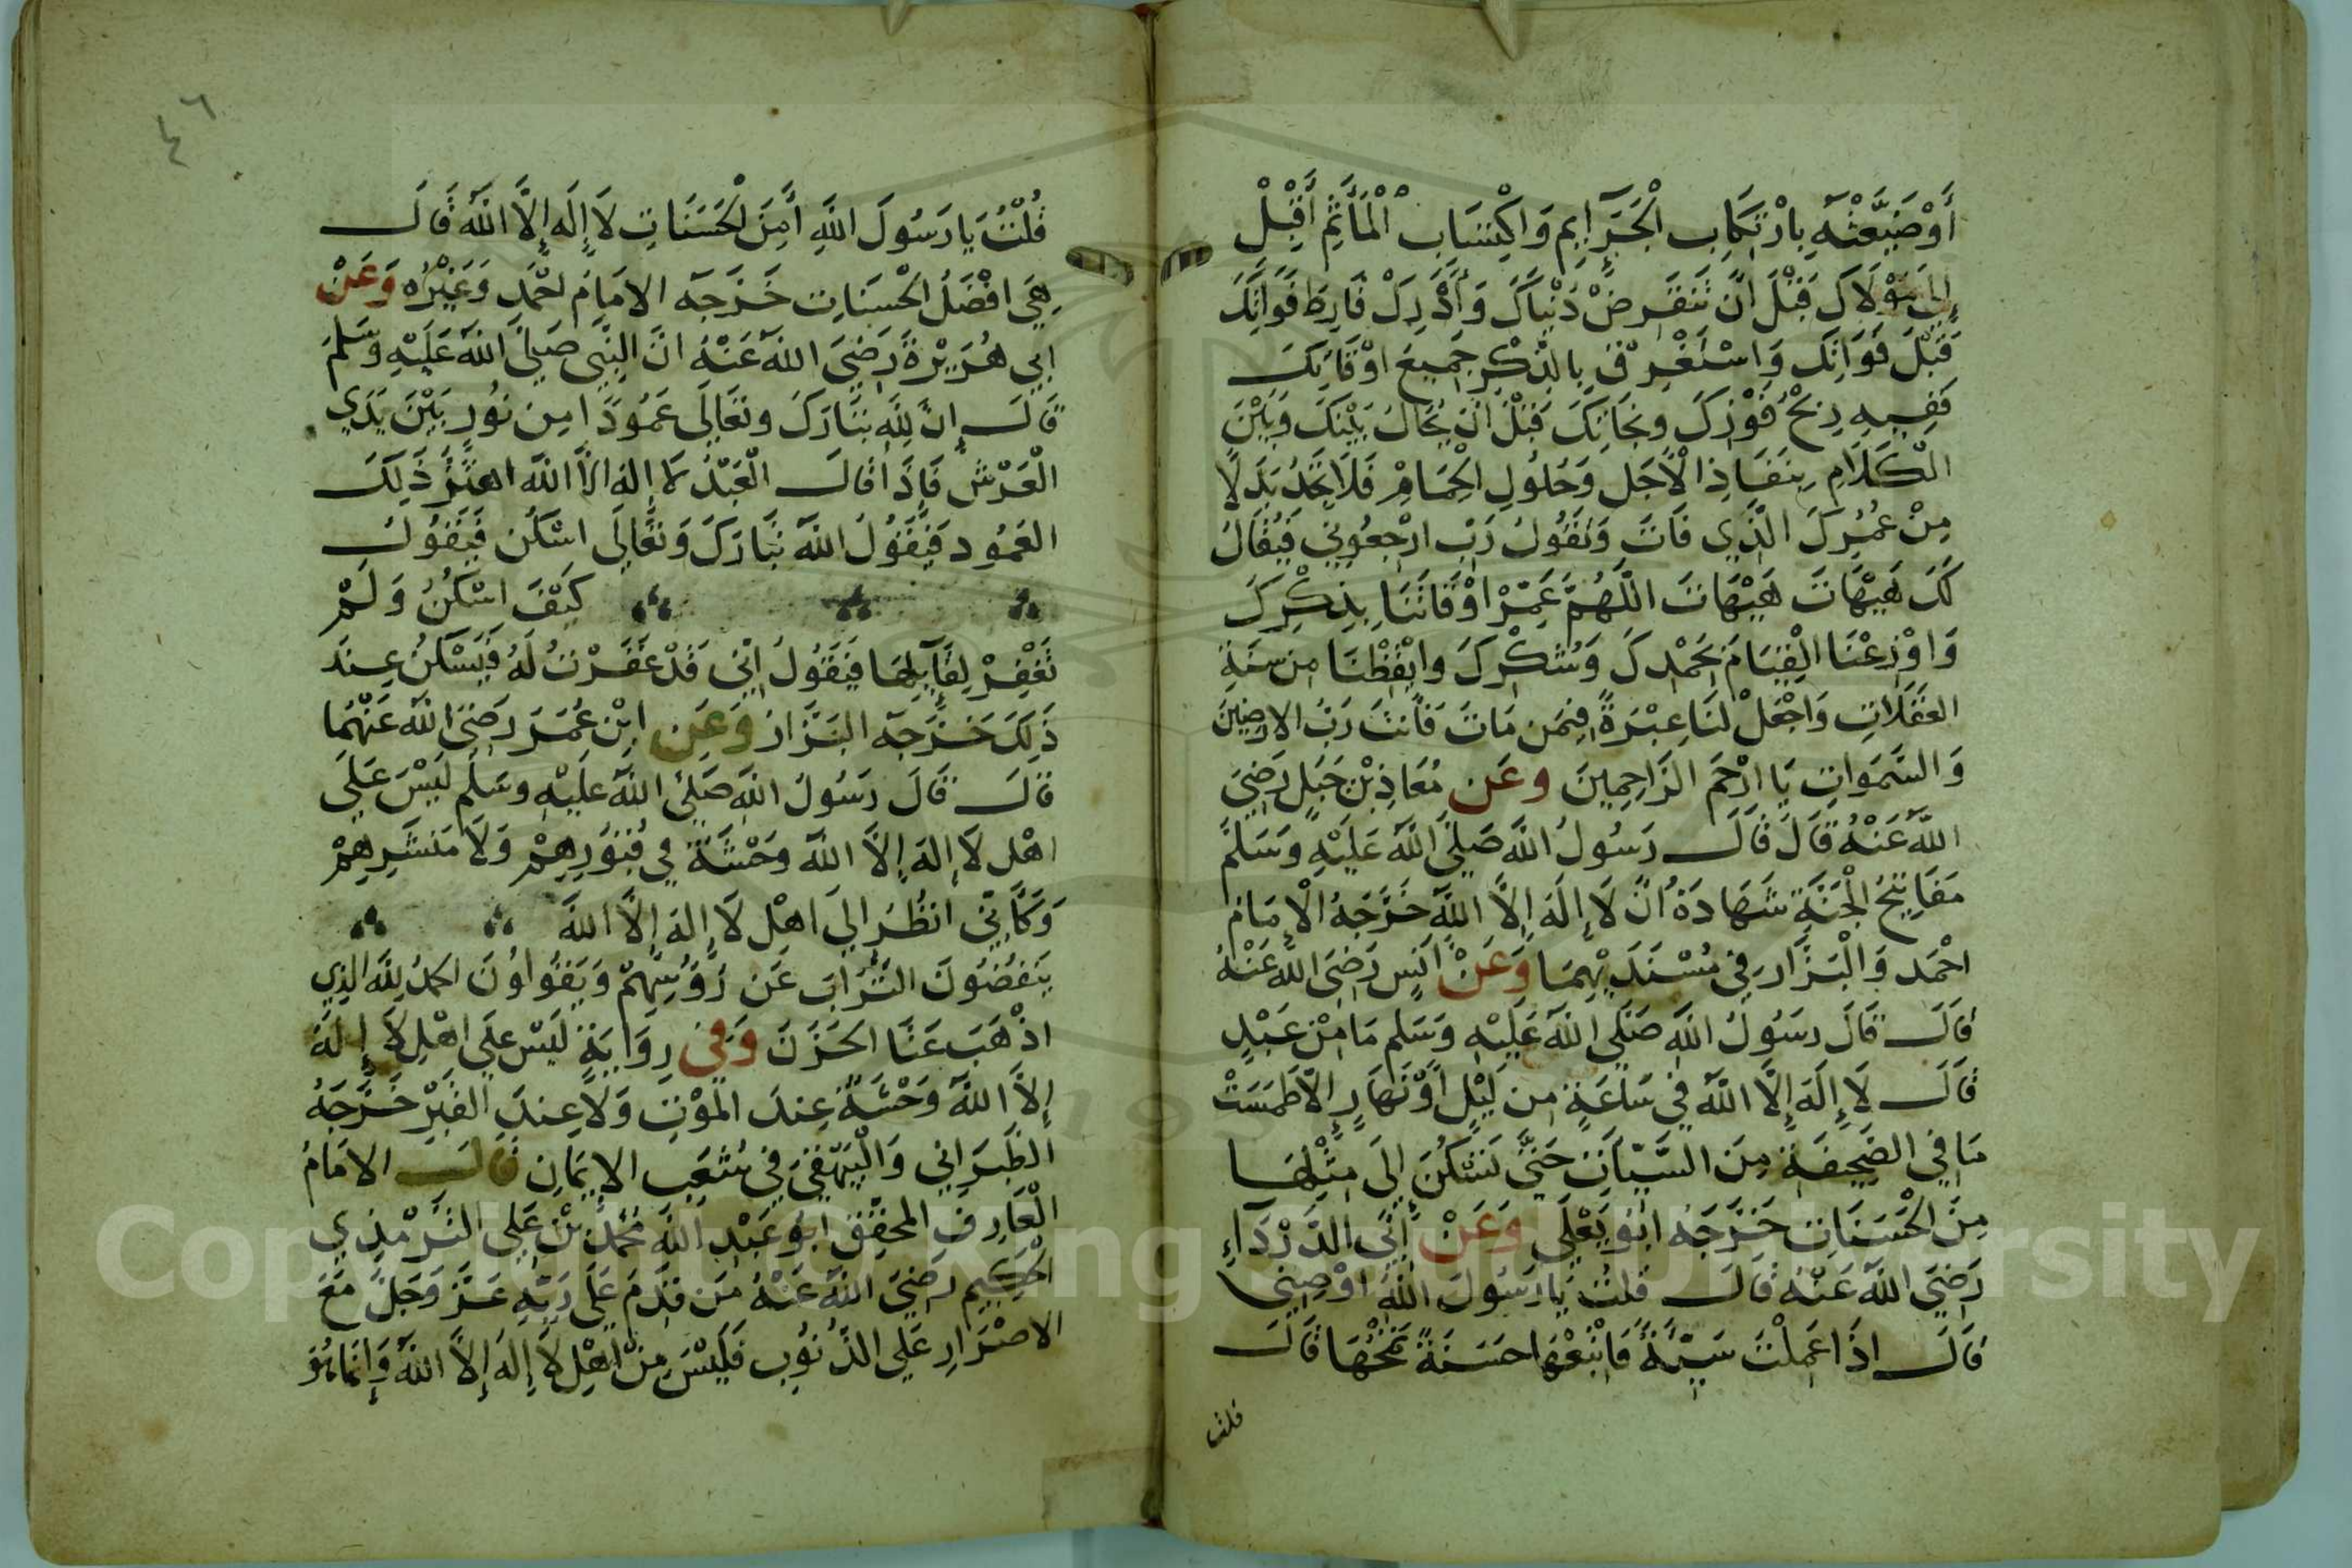 أَوْضَيَّعْتَهُ بِارْتِكَابِ الْجَرَآيِمِ وَاكْتِسَابِ الْمَأَثِمِ أَقْبِلْ
إِلَى مَوْلَاكَ قَبْلَ اَنْ تَنْقَرِضْ دُنْيَاكَ وَأَدْرِكْ فَارِطَ فَوَاتِكَ
قَبْلَ فَوَاتِكَ وَاسْتَغْرِقْ بِالذِّكْرِ جَمِيعَ اوْقَاتِكَ
فَفِيهِ رِبْحُ فَوْزِكَ ونَجَاتِكَ قَبْلَ اَنْ يُحَالَ بَيْنَكَ وَبَيْنَ
الْكَلَامِ بِنَفَاذِ الْأَجَلِ وَحُلُولِ الْحِمَامِ فَلَا تَجِدُ بَدَلًا
مِنْ عُمُرِكَ الَّذِي فَاتَ وَتَقُولُ رَبِّ ارْجِعُونِي فَيُقَالُ
لَكَ هَيْهَاتَ هَيْهَاتَ اللَّهُمَّ عَمِّرْ اوْقَاتَنَا بِذِكْرِكَ
وَاوْزِعْنَا الْقِيَامَ بِحَمْدِكَ وَشُكْرِكَ وايْقِظْنَا مِن سِنَةِ
الغَفَلَاتِ وَاجْعَلْ لَنَا عِبْرَةً فِيمَن مَاتَ فَأَنتَ رَبُّ الارضِينَ
وَالسَّمَوَاتِ يَا ارْحَمَ الرَّاحِمِينَ وعَن مُعَاذِ بْنِ جَبَلٍ رَضِيَ
اللَّهُ عَنْهُ قَالَ قَالَ رَسُولُ اللَّهِ صَلَّى اللَّهُ عَلَيْهِ وَسَلَّمَ
مَفَاتِيحُ الْجَنَّةِ شَهَادَةُ اَنْ لَا إِلَهَ إِلاَّ اللَّهُ خَرَّجَهُ الْاِمَامُ
احْمَد وَالْبَزَّار فِي مُسْنَدَيْهِمَا وَعَنْ اَنَسٍ رَضِيَ اللَّهُ عَنْهُ
قَالَ قَالَ رسُولُ اللَّهِ صَلَّى اللَّهُ عَلَيْهِ وَسَلم مَا مِنْ عَبْدٍ
قَالَ لَا إِلَهَ إِلَّا اللَّهُ فِي سَاعَةٍ مِن لَيْلٍ أَوْ نَهَارٍ إِلَّا طَمَسَتْ
مَا فِي الصَّحِيفَةِ مِنَ السَّيِّآتِ حَتَّى تَسْكُنَ إِلَى مِثْلِهَا
مِنَ الْحَسَنَاتِ خَرَّجَهُ ابُو يَعْلَى وَعَنْ أَبِي الدَّرْدَآءِ
رَضِيَ اللَّهُ عَنْهُ قَالَ قُلتُ يَا رَسُولَ اللَّهِ اوْصِنِي
قَالَ اذَا عَمِلْتَ سَيِّئَةً فَاَتْبِعْهَا حَسَنَةً تَمْحُهَا قَالَ
قلت
٤٦
قُلْتُ يَا رَسُولَ اللَّهِ أَمِنَ الْحَسَنَاتِ لَا إِلَه إِلَّا اللَّهُ قَالَ
هِيَ افْضَلُ الْحَسَنَاتِ خَرَّجَهُ الامَامُ احْمَد وَغَيْرُه وَعَنْ
ابِي هُرَيْرَةَ رَضِيَ اللَّهُ عَنْهُ انَّ النَّبِي صَلَّى اللَّهُ عَلَيْهِ وَسَلمَ
قَالَ إِنَّ لِلَّهِ تَبَارَكَ وتعَالَى عَمُودًا مِن نُورٍ بَيْنَ يَدَيِ
الْعَرْشِ فَاِذَا قَالَ الْعَبْدُ لَا إِلهَ الاَّ اللَّه اهتَزَّ ذَلِكَ
العَمُود فَيَقُولُ اللَّهُ تَبَارَكَ وَتَعَالَى اسْكُن فَيَقُولُ
كَيْفَ اسْكُنُ وَلَمْ
تَغْفِرْ لِقَآيلِهَا فَيَقُولُ اِنِّي قَدْ غَفَرْتُ لَهُ فَيَسْكنُ عِندَ
ذَلِكَ خَرَّجَهُ البَزَّارُ وَعَنِ ابْنِ عُمَرَ رَضِيَ اللَّهُ عَنْهُمَا
قالَ قَالَ رَسُولُ اللَّهِ صَلَّى اللَّهُ عَلَيْهِ وسَلَّم لَيْسَ عَلَى
اهْلِ لَا إِلهَ إِلاَّ اللَّهُ وَحْشَةٌ فِي قُبُورِهِمْ وَلَا مَنشَرِهِمْ
وَكَأَنِّي انظُرُ إِلَى اهْلِ لَا إِلهَ إِلَّا اللَّهُ
يَنفُضُونَ التُّرَابَ عَن رُؤُسِهِمْ وَيَقُولُونَ الحمدُ لِلَّهِ الذِي
اذْهَبَ عَنَّا الحَزَنَ وَفِي رِوَايَةٍ لَيْسَ عَلَى اهْلِ لَا إِلهَ
إِلاَّ اللَّهُ وَحْشَةٌ عِندَ الْمَوْتِ وَلَا عِندَ الْقَبْرِ خَرَّجَهُ
الطَّبَرَانِي وَالْبَيْهَقِيُّ فِي شُعَبِ الايمَانِ قَالَ الامَامُ
الْعَارِفُ المحَقِّقُ ابُو عَبْدِ اللَّهِ مُحَمَّدُ بْنُ عَلِي التِّرْمِذِي
الْحَكِيم رَضِيَ اللَّهُ عَنْهُ مَن قَدِمَ عَلَى رَبِّهِ عَزَّ وَجَلَّ مَعَ
الاصْرَارِ عَلَى الذُّنُوبِ فَلَيْسَ مِنْ اَهْلِ لَا إِلهَ إِلاَّ اللَّهُ وَإِنَّمَا هُوَ
Copyright © King Saud University